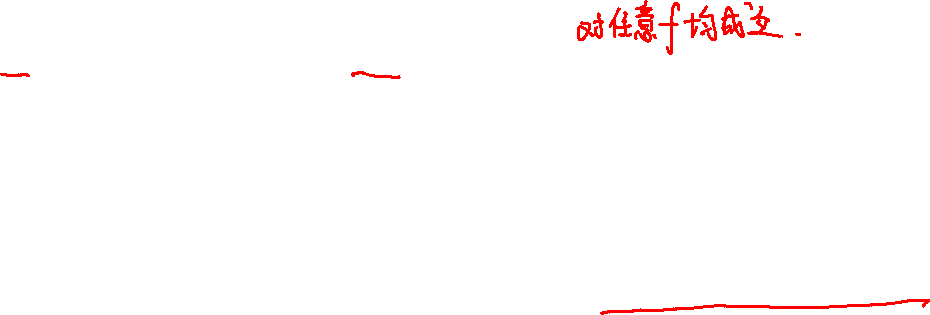 对任意f均成立.